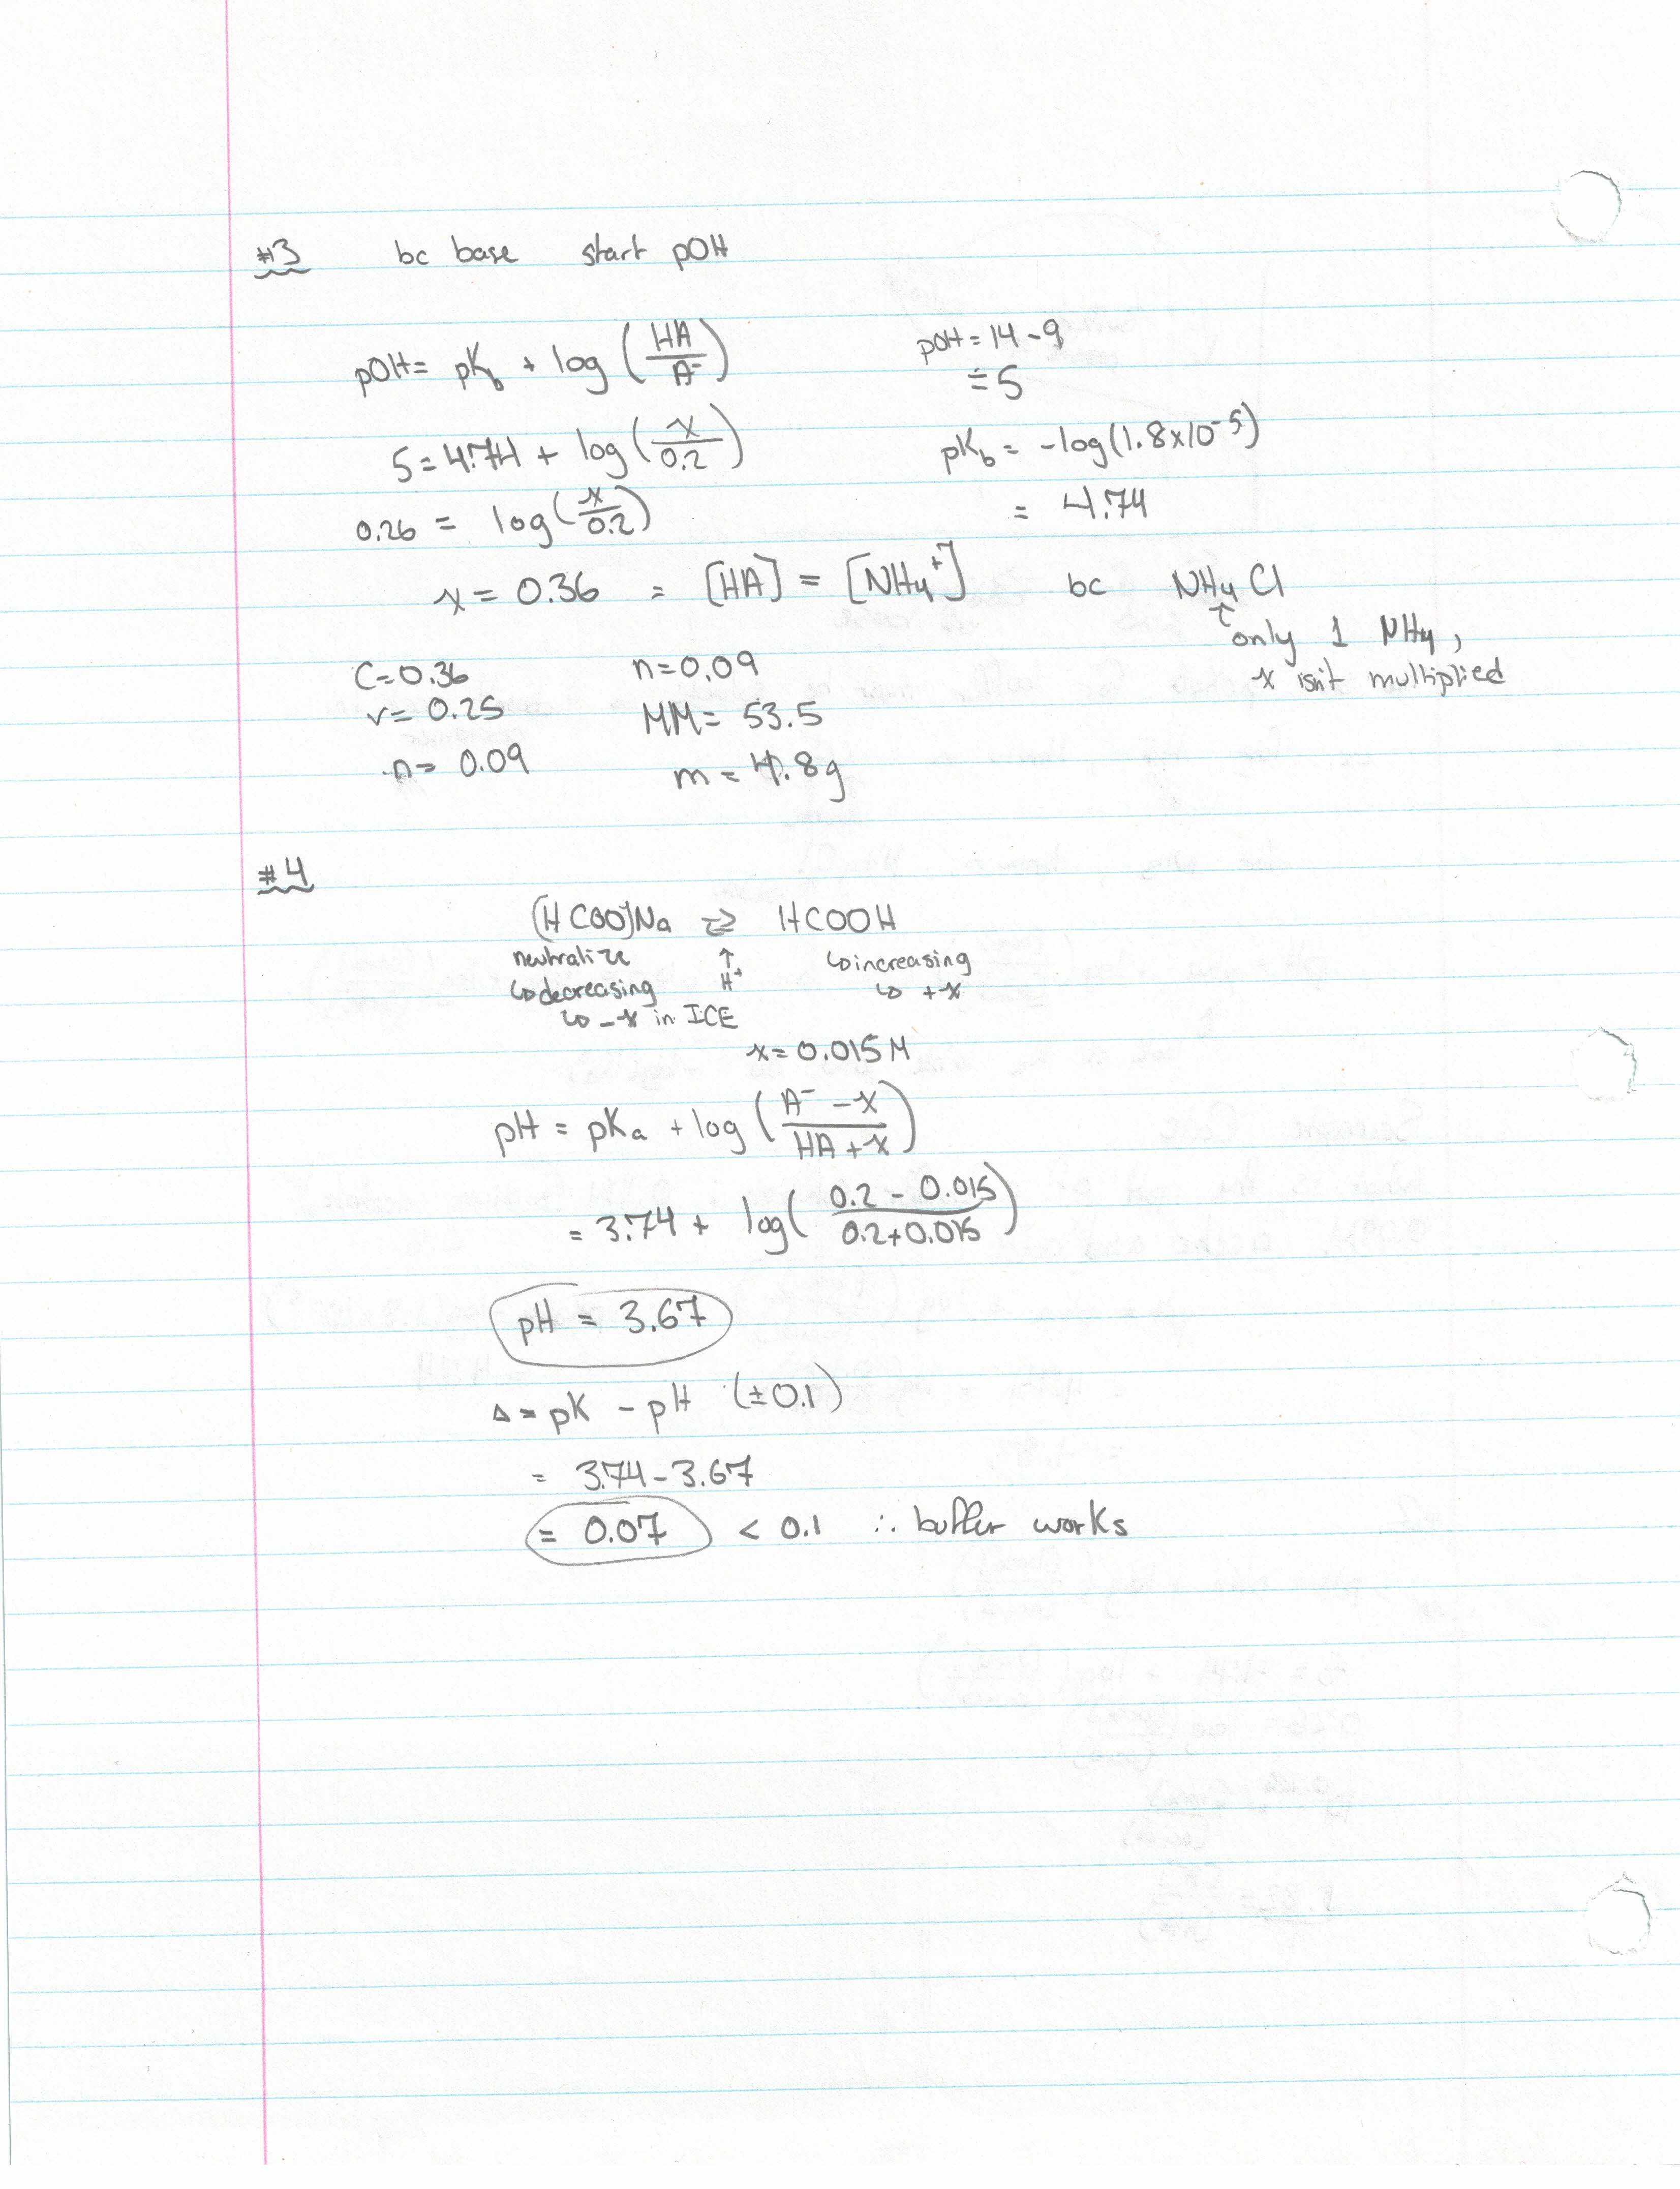 #3 bc base start pOH
pOH = pKb + log (HA/A⁻) pOH = 14 - 9
= 5
5 = 4.74 + log (x/0.2) pKb = -log(1.8x10⁻⁵)
0.26 = log (x/0.2) = 4.74
x = 0.36 = [HA] = [NH4⁺] bc NH4Cl
↑ only 1 NH4,
x isn't multiplied
C = 0.36 n = 0.09
v = 0.25 MM = 53.5
n = 0.09 m = 4.8g
#4
(HCOO)Na ⇄ HCOOH
neutralize ↑ ↳ increasing
↳ decreasing H⁺ ↳ +x
↳ -x in ICE
x = 0.015 M
pH = pKa + log (A⁻ - x/HA + x)
= 3.74 + log (0.2 - 0.015/0.2 + 0.015)
pH = 3.67
Δ = pK - pH (±0.1)
= 3.74 - 3.67
= 0.07 < 0.1 ∴ buffer works